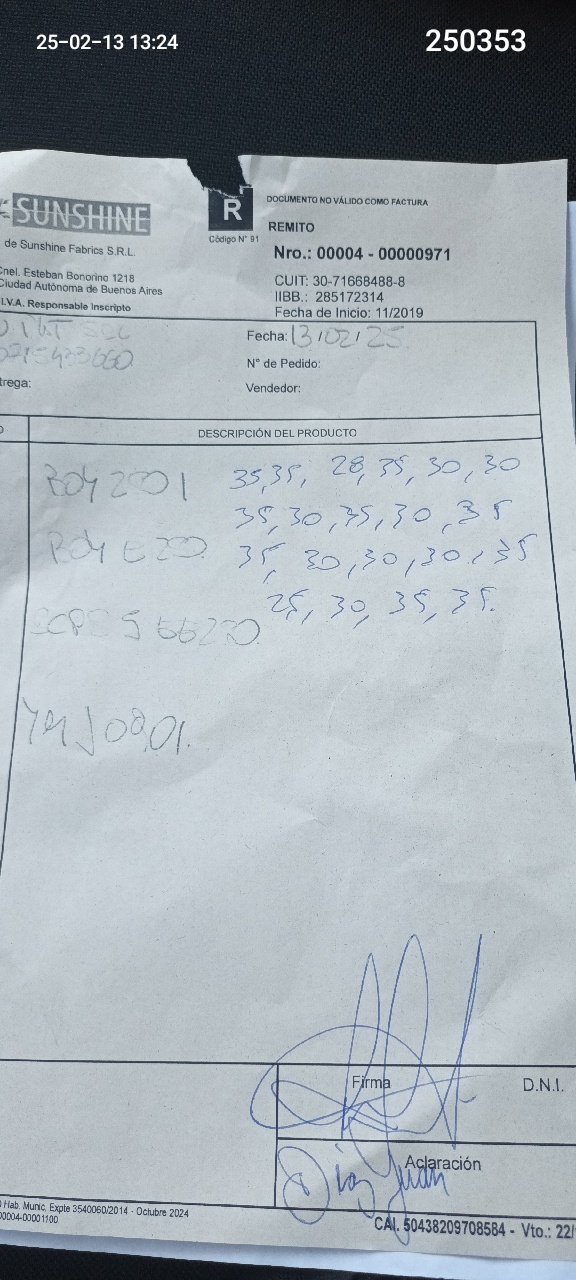 25-02-13 13:24
250353
SUNSHINE
de Sunshine Fabrics S.R.L.
nel. Esteban Bonorino 1218
Ciudad Autónoma de Buenos Aires
I.V.A. Responsable Inscripto
R
Código N° 91
DOCUMENTO NO VÁLIDO COMO FACTURA
REMITO
Nro.: 00004 - 00000971
CUIT: 30-71668488-8
IIBB.: 285172314
Fecha de Inicio: 11/2019
trega:
Fecha: 13/02/25
N° de Pedido:
Vendedor:
DESCRIPCIÓN DEL PRODUCTO
35,35, 28,35,30,30
35,30,35,30,35
35, 30,30,30,35
25,30,35,35.
Firma
D.N.I.
Aclaración
Diaz Juan
Hab. Munic, Expte 3540060/2014 - Octubre 2024
0004-00001100
CAI. 50438209708584 - Vto.: 22/